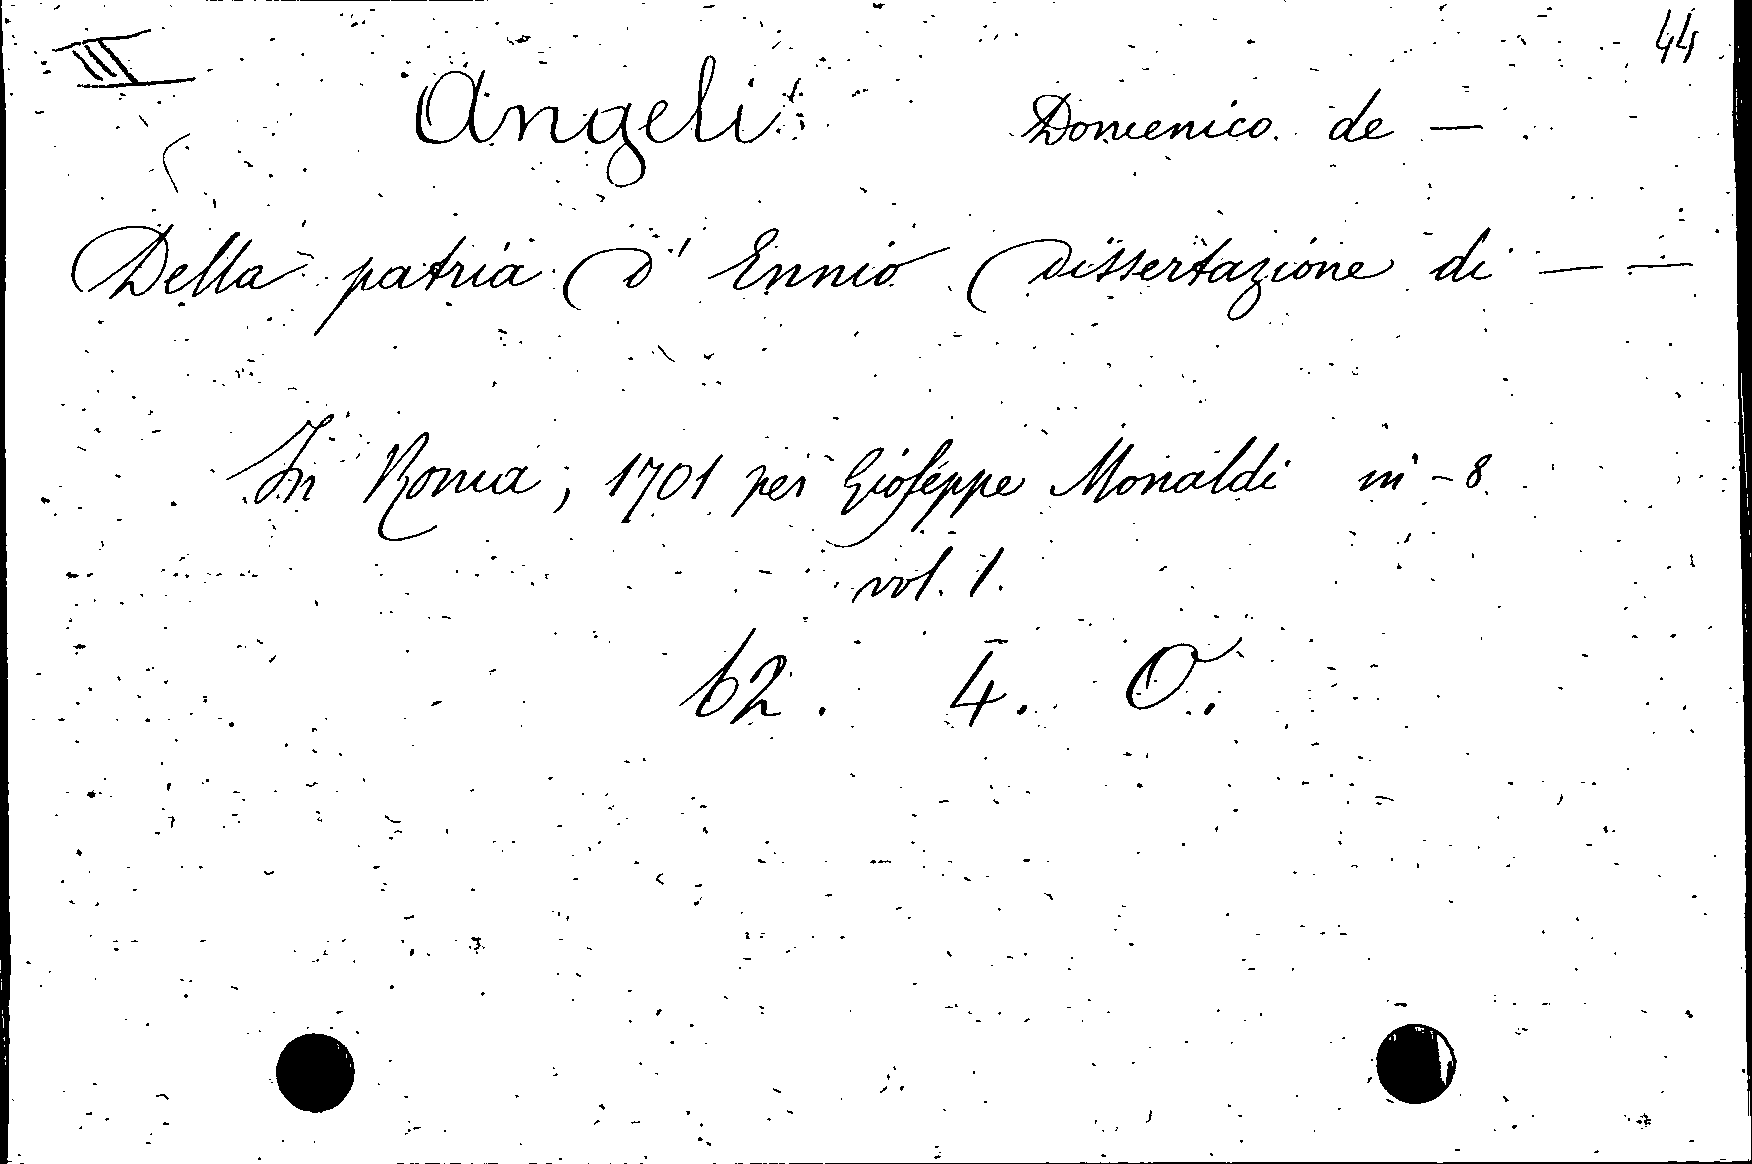 III 44
Angeli Domenico de —
Della patria d' Ennio Dissertazione di — —
In Roma, 1701 per Gioseppe Monaldi in - 8
vol. 1.
62. 4. O.